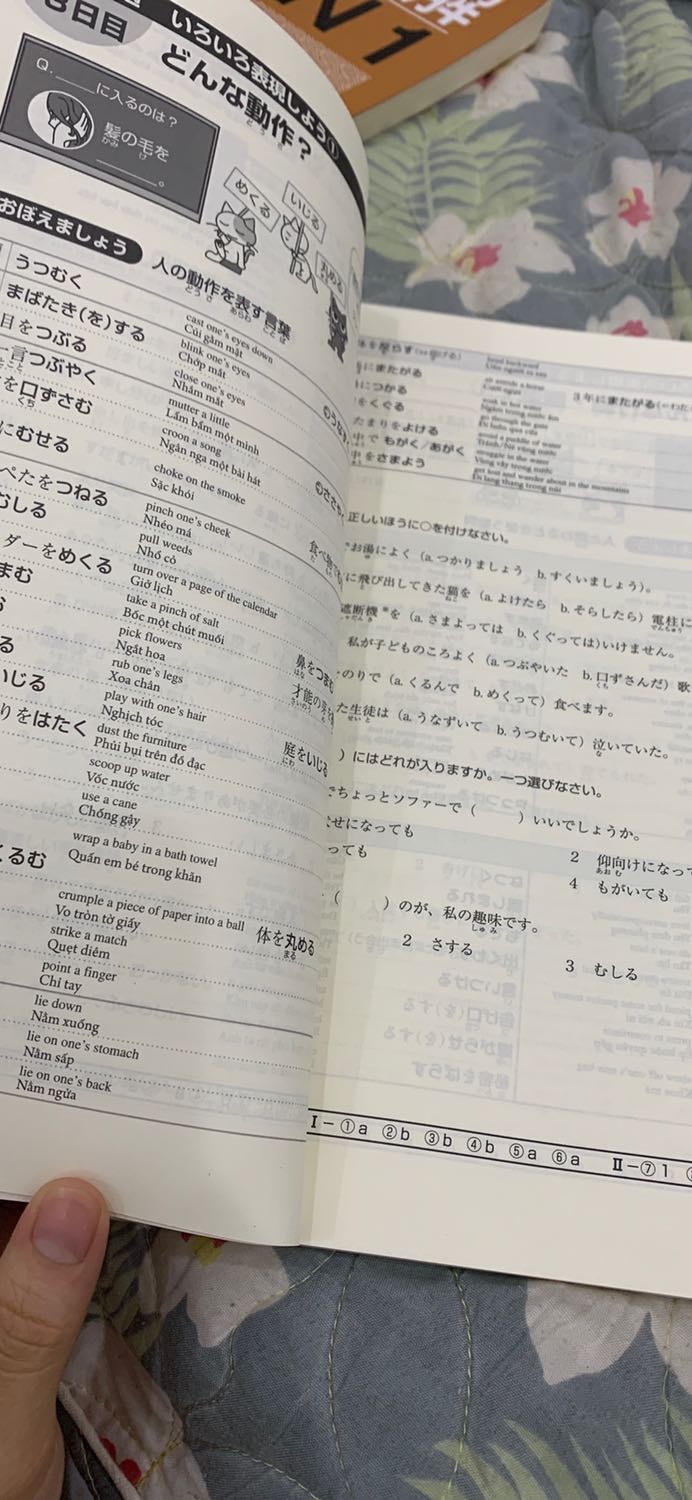 N1
8日目
いろいろ表現しよう①
どんな動作?
どう さ
Q.____に入るのは?
髪の毛を
かみ け
____。
めくる
いじる
丸める
おぼえましょう
人の動作を表す言葉
どう さ あらわ こと ば
うつむく
cast one's eyes down
Cúi gằm mặt
まばたき(を)する
blink one's eyes
Chớp mắt
目をつぶる
close one's eyes
Nhắm mắt
一言つぶやく
mutter a little
Lẩm bẩm một mình
を口ずさむ
くち
croon a song
Ngân nga một bài hát
にむせる
choke on the smoke
Sặc khói
ぺたをつねる
pinch one's cheek
Nhéo má
むしる
pull weeds
Nhổ cỏ
ダーをめくる
turn over a page of the calendar
Giở lịch
まむ
take a pinch of salt
Bốc một chút muối
鼻をつまむ
はな
む
pick flowers
Ngắt hoa
才能の芽を
さいのう
る
rub one's legs
Xoa chân
いじる
play with one's hair
Nghịch tóc
庭をいじる
にわ
りをはたく
dust the furniture
Phủi bụi trên đồ đạc
scoop up water
Vốc nước
use a cane
Chống gậy
くるむ
wrap a baby in a bath towel
Quấn em bé trong khăn
crumple a piece of paper into a ball
Vo tròn tờ giấy
体を丸める
まる
strike a match
Quẹt diêm
point a finger
Chỉ tay
lie down
Nằm xuống
lie on one's stomach
Nằm sấp
lie on one's back
Nằm ngửa
bend backward
にまたがる
sit astride a horse
Cưỡi ngựa
3年にまたがる
につかる
soak in hot water
Ngâm trong nước ấm
をくぐる
go through the gate
Đi luồn qua cửa
たまりをよける
avoid a puddle of water
Tránh/Né vũng nước
中で もがく/あがく
struggle in the water
Vùng vẫy trong nước
中をさまよう
get lost and wander about in the mountains
Đi lang thang trong núi
正しいほうに○を付けなさい。
お湯によく(a. つかりましょう b. すくいましょう)。
に飛び出してきた猫を(a. よけたら b. そらしたら)電柱に
遮断機*を(a. さまよっては b. くぐっては)いけません。
私が子どものころよく(a. つぶやいた b. 口ずさんだ)歌
のりで(a. くるんで b. めくって)食べます。
た生徒は(a. うなずいて b. うつむいて)泣いていた。
)にはどれが入りますか。一つ選びなさい。
でちょっとソファーで( )いいでしょうか。
せになっても
2 仰向けになって
あお む
っても
4 もがいても
( )のが、私の趣味です。
しゅ み
2 さする
3 むしる
Ⅰ－①a ②b ③b ④b ⑤a ⑥a Ⅱ－⑦1